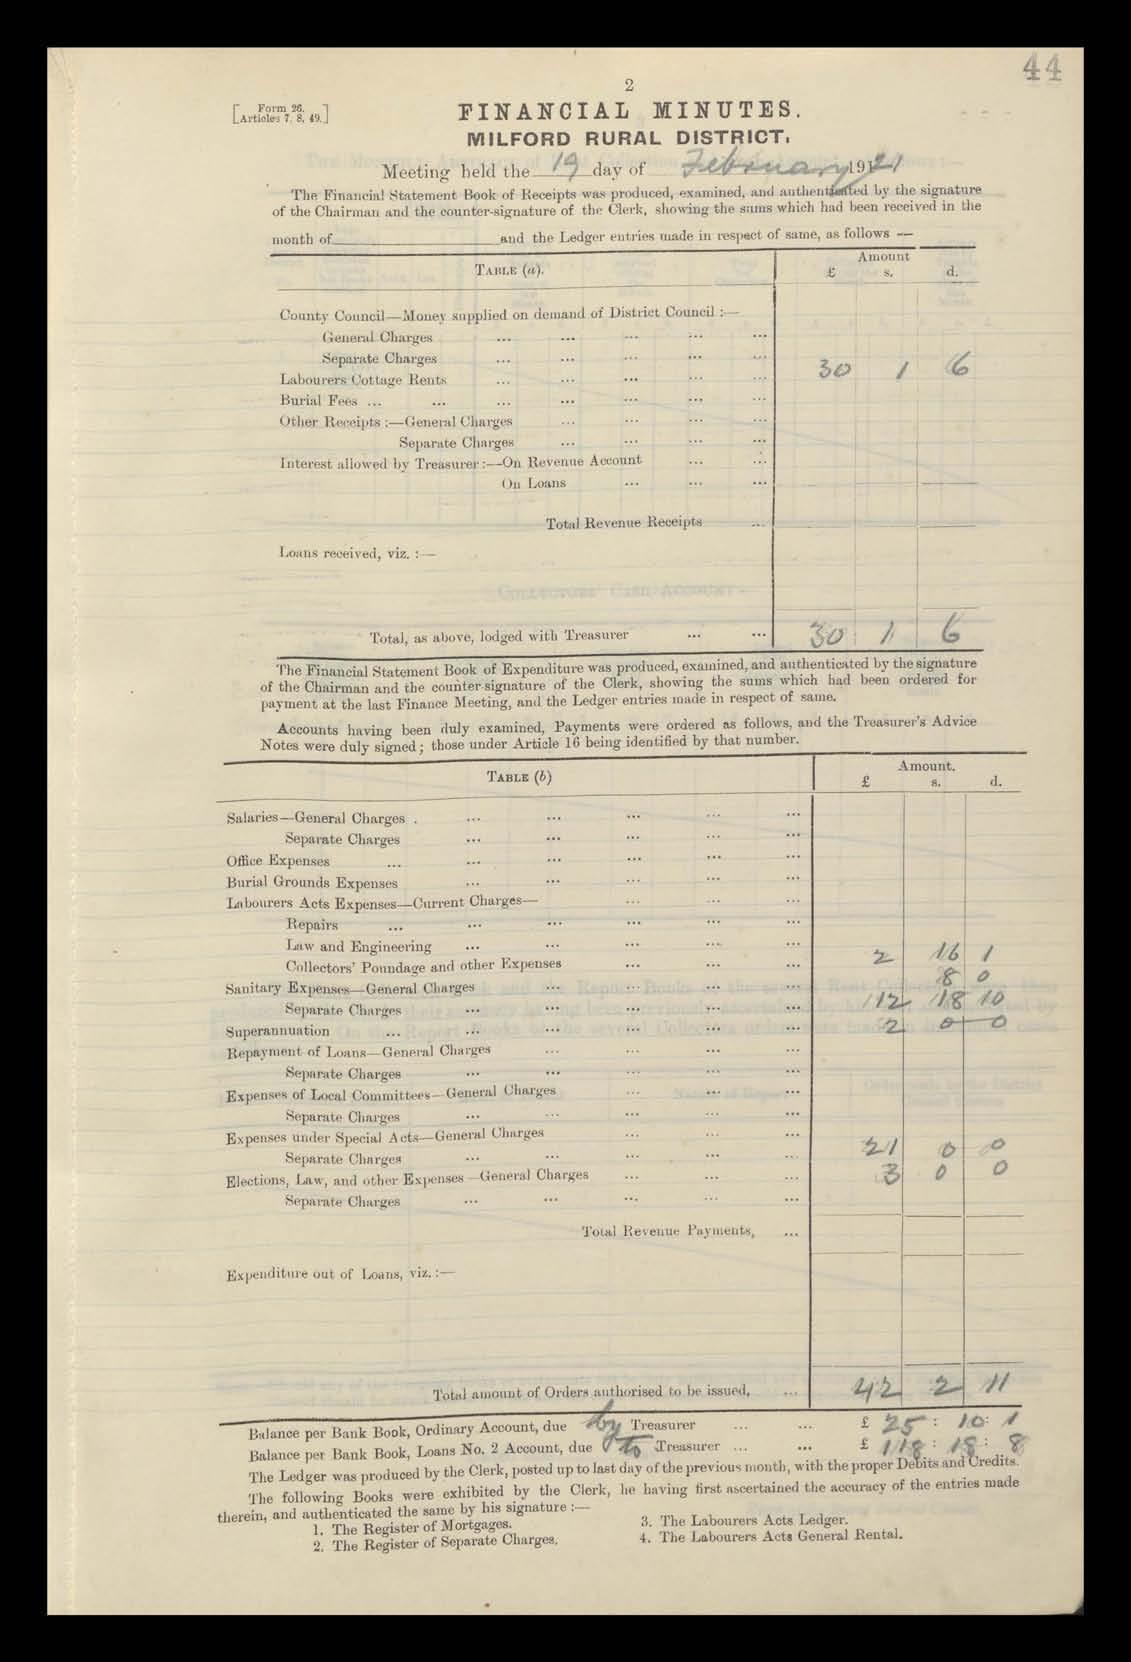 44
2
[Form 26. Articles 7, 8, 49.]
FINANCIAL MINUTES.
MILFORD RURAL DISTRICT.
Meeting held the 19 day of February 1921
The Financial Statement Book of Receipts was produced, examined, and authenticated by the signature
of the Chairman and the counter-signature of the Clerk, showing the sums which had been received in the
month of and the Ledger entries made in respect of same, as follows —
TABLE (a). Amount
£ s. d.
County Council—Money supplied on demand of District Council :—
General Charges ... ... ... ... ...
Separate Charges ... ... ... ... ...
30 1 6
Labourers Cottage Rents ... ... ... ... ...
Burial Fees ... ... ... ... ... ... ...
Other Receipts :—General Charges ... ... ... ...
Separate Charges ... ... ... ...
Interest allowed by Treasurer :—On Revenue Account ... ...
On Loans ... ... ...
Total Revenue Receipts ...
Loans received, viz. :—
Total, as above, lodged with Treasurer ... ... 30 1 6
The Financial Statement Book of Expenditure was produced, examined, and authenticated by the signature
of the Chairman and the counter-signature of the Clerk, showing the sums which had been ordered for
payment at the last Finance Meeting, and the Ledger entries made in respect of same.
Accounts having been duly examined, Payments were ordered as follows, and the Treasurer's Advice
Notes were duly signed; those under Article 16 being identified by that number.
TABLE (b) Amount.
£ s. d.
Salaries—General Charges . ... ... ... ... ...
Separate Charges ... ... ... ... ...
Office Expenses ... ... ... ... ... ...
Burial Grounds Expenses ... ... ... ... ...
Labourers Acts Expenses—Current Charges— ... ... ...
Repairs ... ... ... ... ... ...
Law and Engineering ... ... ... ... ...
Collectors' Poundage and other Expenses ... ... ... 2 16 1
Sanitary Expenses—General Charges ... ... ... ... 8 0
Separate Charges ... ... ... ... ... 112 18 10
Superannuation ... ... ... ... ... ... 2 0 0
Repayment of Loans—General Charges ... ... ... ...
Separate Charges ... ... ... ... ...
Expenses of Local Committees—General Charges ... ... ...
Separate Charges ... ... ... ... ...
Expenses under Special Acts—General Charges ... ... ...
Separate Charges ... ... ... ... ... 21 0 0
Elections, Law, and other Expenses—General Charges ... ... ... 3 0 0
Separate Charges ... ... ... ... ...
Total Revenue Payments, ...
Expenditure out of Loans, viz. :—
Total amount of Orders authorised to be issued, ... 42 2 11
Balance per Bank Book, Ordinary Account, due by Treasurer ... ... £ 25 : 10 : 1
Balance per Bank Book, Loans No. 2 Account, due to Treasurer ... ... £ 118 : 18 : 8
The Ledger was produced by the Clerk, posted up to last day of the previous month, with the proper Debits and Credits.
The following Books were exhibited by the Clerk, he having first ascertained the accuracy of the entries made
therein, and authenticated the same by his signature :—
1. The Register of Mortgages. 3. The Labourers Acts Ledger.
2. The Register of Separate Charges. 4. The Labourers Acts General Rental.